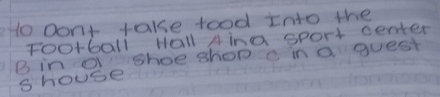 10 Dont take food Into the
Football Hall A in a sport center
B in a shoe shop c in a guest
s house